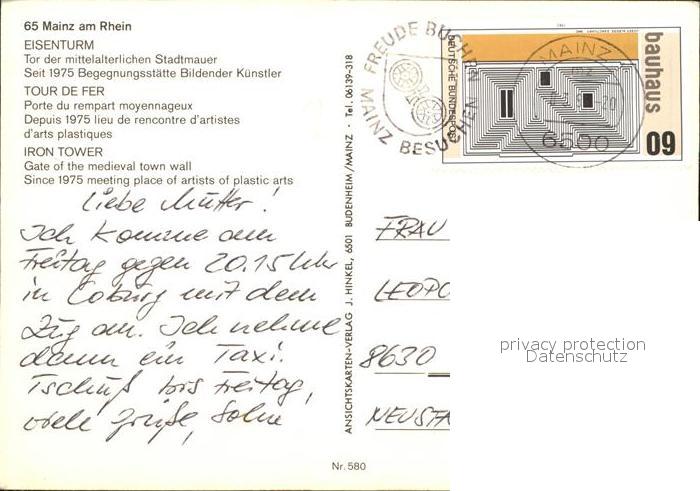 65 Mainz am Rhein
EISENTURM
Tor der mittelalterlichen Stadtmauer
Seit 1975 Begegnungsstätte Bildender Künstler
TOUR DE FER
Porte du rempart moyennageux
Depuis 1975 lieu de rencontre d'artistes
d'arts plastiques
IRON TOWER
Gate of the medieval town wall
Since 1975 meeting place of artists of plastic arts
Liebe Mutter!
Ich komme am
Freitag gegen 20.15 Uhr
in Coburg mit dem
Zug an. Ich nehme
dann ein Taxi.
Tschüß bis Freitag,
viele Grüße,
Nr. 580
ANSICHTSKARTEN-VERLAG J. HINKEL, 6501 BUDENHEIM/MAINZ · Tel. 06139-318
MAINZ FREUDE BUCHEN
MAINZ BESUCHEN
DEUTSCHE BUNDESPOST
bauhaus
60
MAINZ
6500
FRAU
LEOPO
8630
NEUSTA
privacy protection
Datenschutz